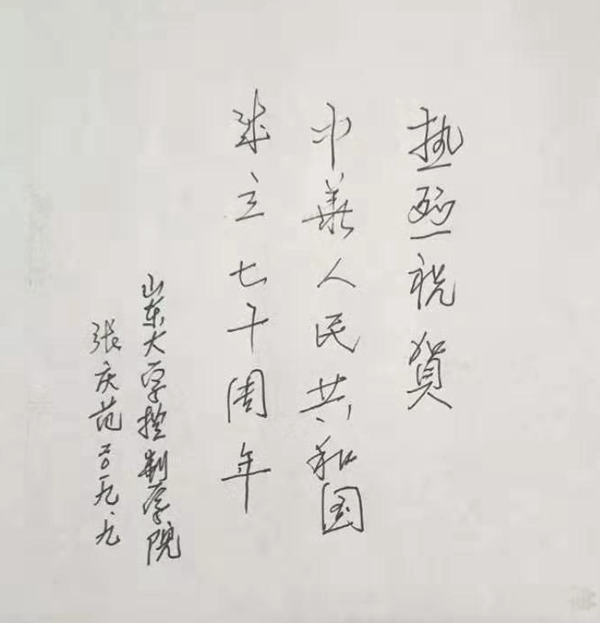 热烈祝贺
中华人民共和国
成立七十周年
山东大学控制学院
张庆范 二〇一九.九